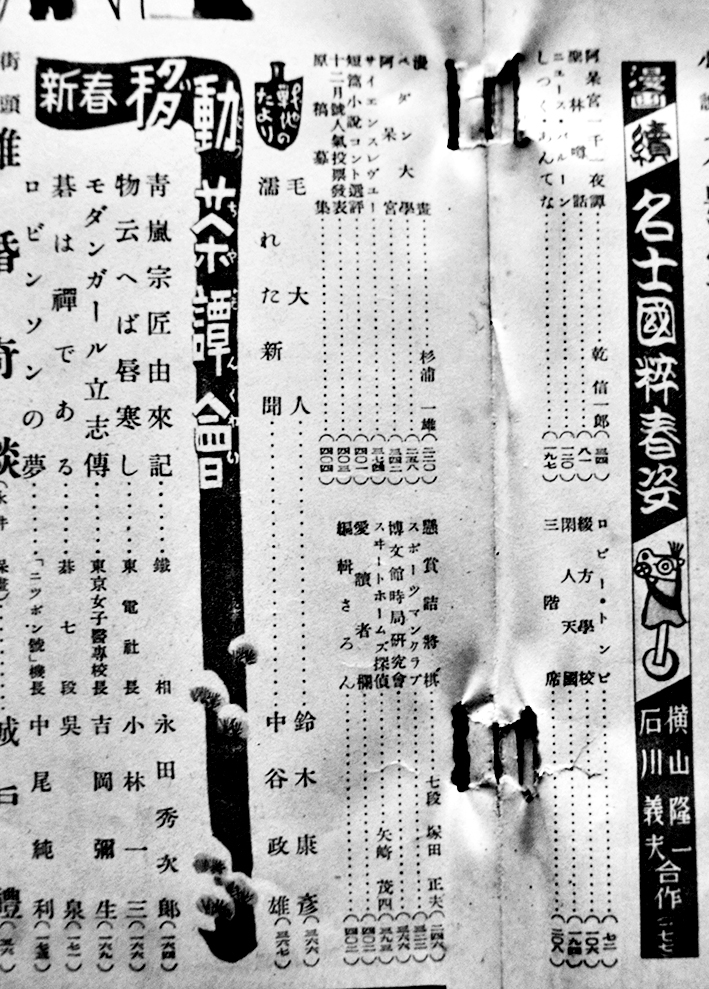 漫画
續 名士國粹春姿
横山隆一
石川義夫 合作 (一七七)
阿呆宮一千一夜譚 乾信一郎 (三四)
聖林噂話 (八一)
ニュース・バルーン (一三〇)
しつく・あんてな (一九七)
ロビー・トンビ (七二)
綴方學校 (一〇六)
閑人天國 (一九四)
三階席 (二〇八)
漫畫 杉浦一雄 (二二〇)
モダン大學 (二五八)
阿呆宮 (三四二)
サイエンスレヴュー (三七四)
短篇小説コント選評 (四〇一)
十二月號人氣投票發表 (四〇三)
原稿募集 (四〇四)
懸賞詰將棋 七段 塚田正夫 (二四六)
スポーツマンクラブ (三二三)
博文館時局研究會 (三六六)
スヰートホームズ探偵 矢崎茂四 (三九三)
愛讀者欄 (四〇二)
編輯さろん (四〇二)
戰地のたより
毛大人 鈴木康彦 (三六六)
濡れた新聞 中谷政雄 (三六七)
新春移動茶譚會
青嵐宗匠由來記 鐵相 永田秀次郎 (一六四)
物云へば唇寒し 東電社長 小林一三 (一六六)
モダンガール立志傳 東京女子醫專校長 吉岡彌生 (一六九)
碁は禪である 碁七段 呉泉 (一七一)
ロビンソンの夢 「ニッポン號」機長 中尾純利 (一七五)
街頭